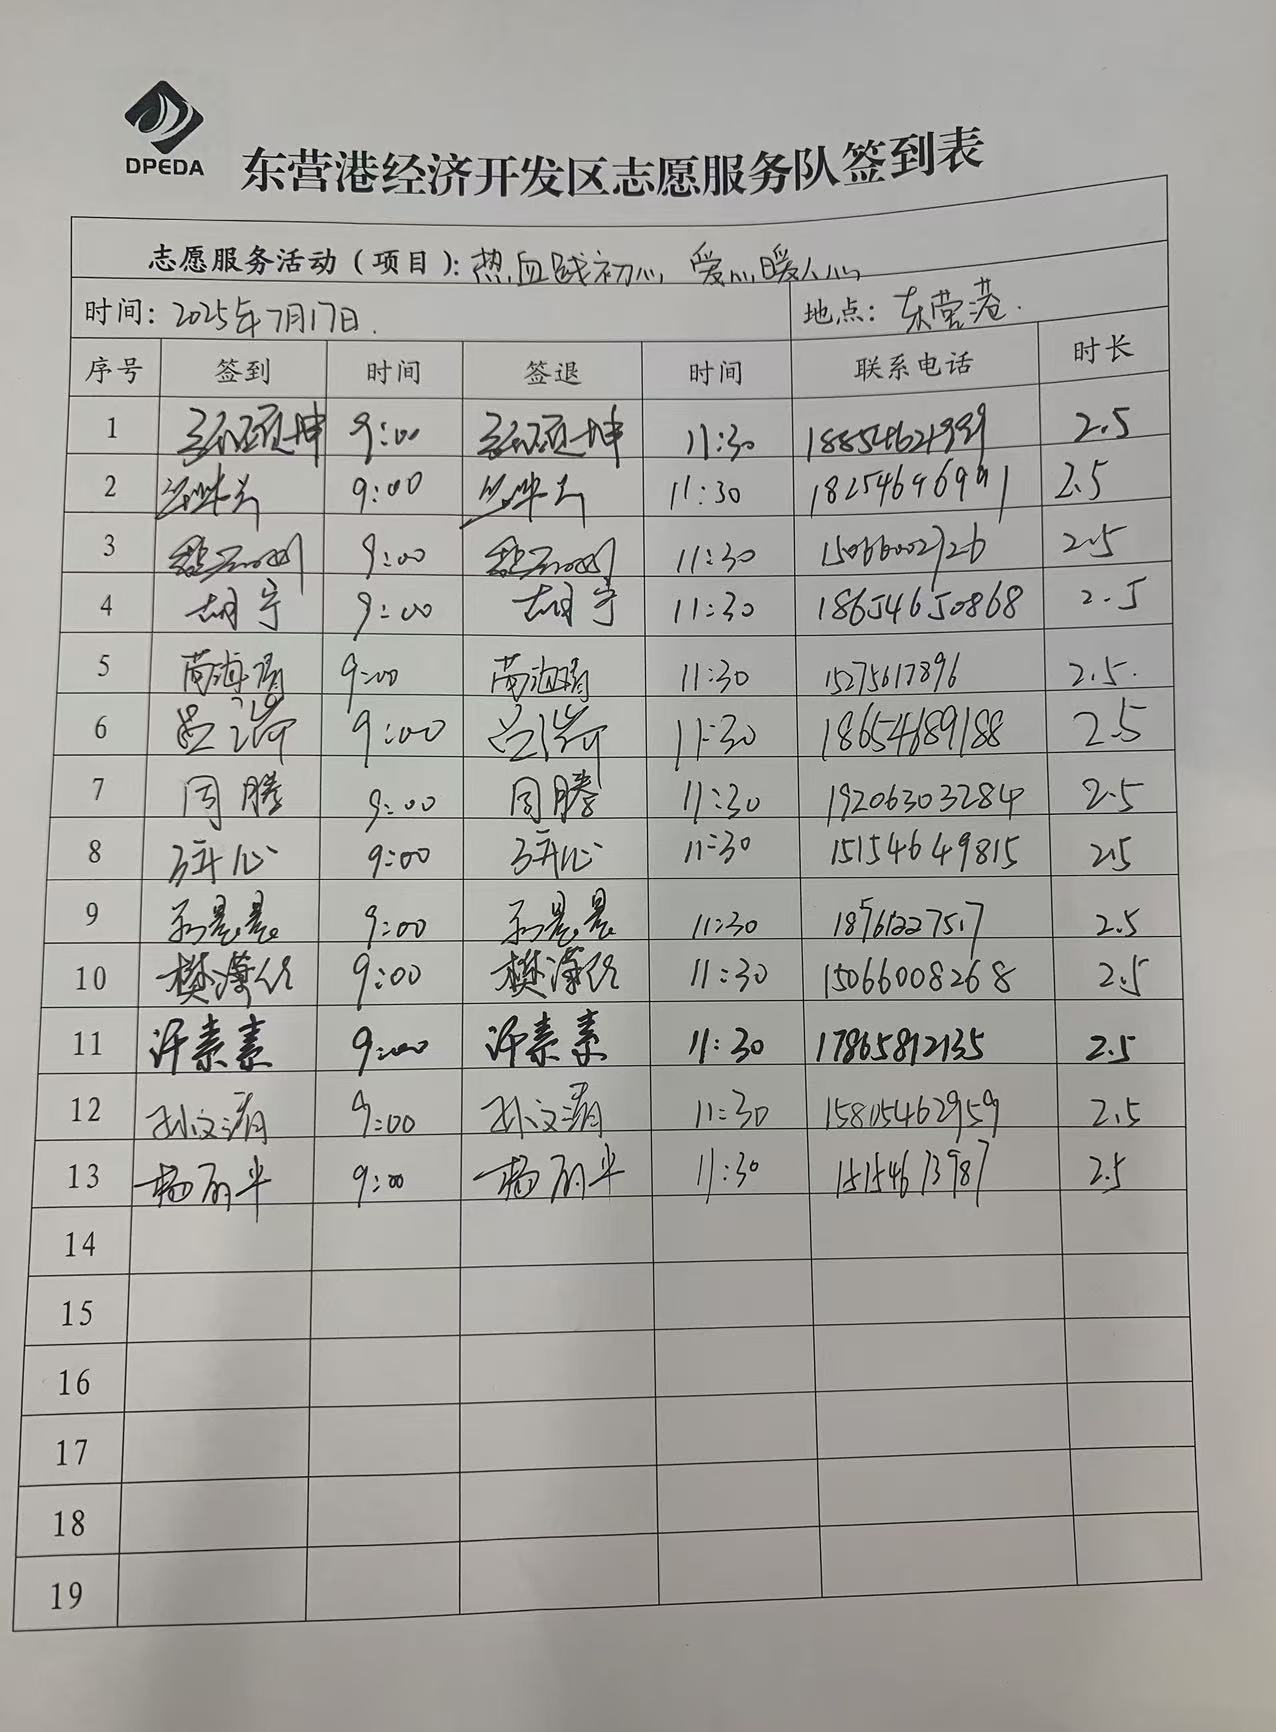 DPEDA
东营港经济开发区志愿服务队签到表
志愿服务活动（项目）：热血践初心 爱心暖人心
时间：2025年7月17日. 地点：东营港.
序号 签到 时间 签退 时间 联系电话 时长
1 9:00 11:30 2.5
2 9:00 11:30 2.5
3 9:00 11:30 2.5
4 胡宇 9:00 胡宇 11:30 18654650868 2.5
5 9:00 11:30 15275617896 2.5.
6 9:00 11:30 18654689188 2.5
7 周腾 9:00 周腾 11:30 19206303284 2.5
8 9:00 11:30 15154649815 2.5
9 9:00 11:30 2.5
10 9:00 11:30 15066008268 2.5
11 许素素 9:00 许素素 11:30 17865812135 2.5
12 孙文涛 9:00 孙文涛 11:30 15805462959 2.5
13 杨丽平 9:00 杨丽平 11:30 2.5
14
15
16
17
18
19